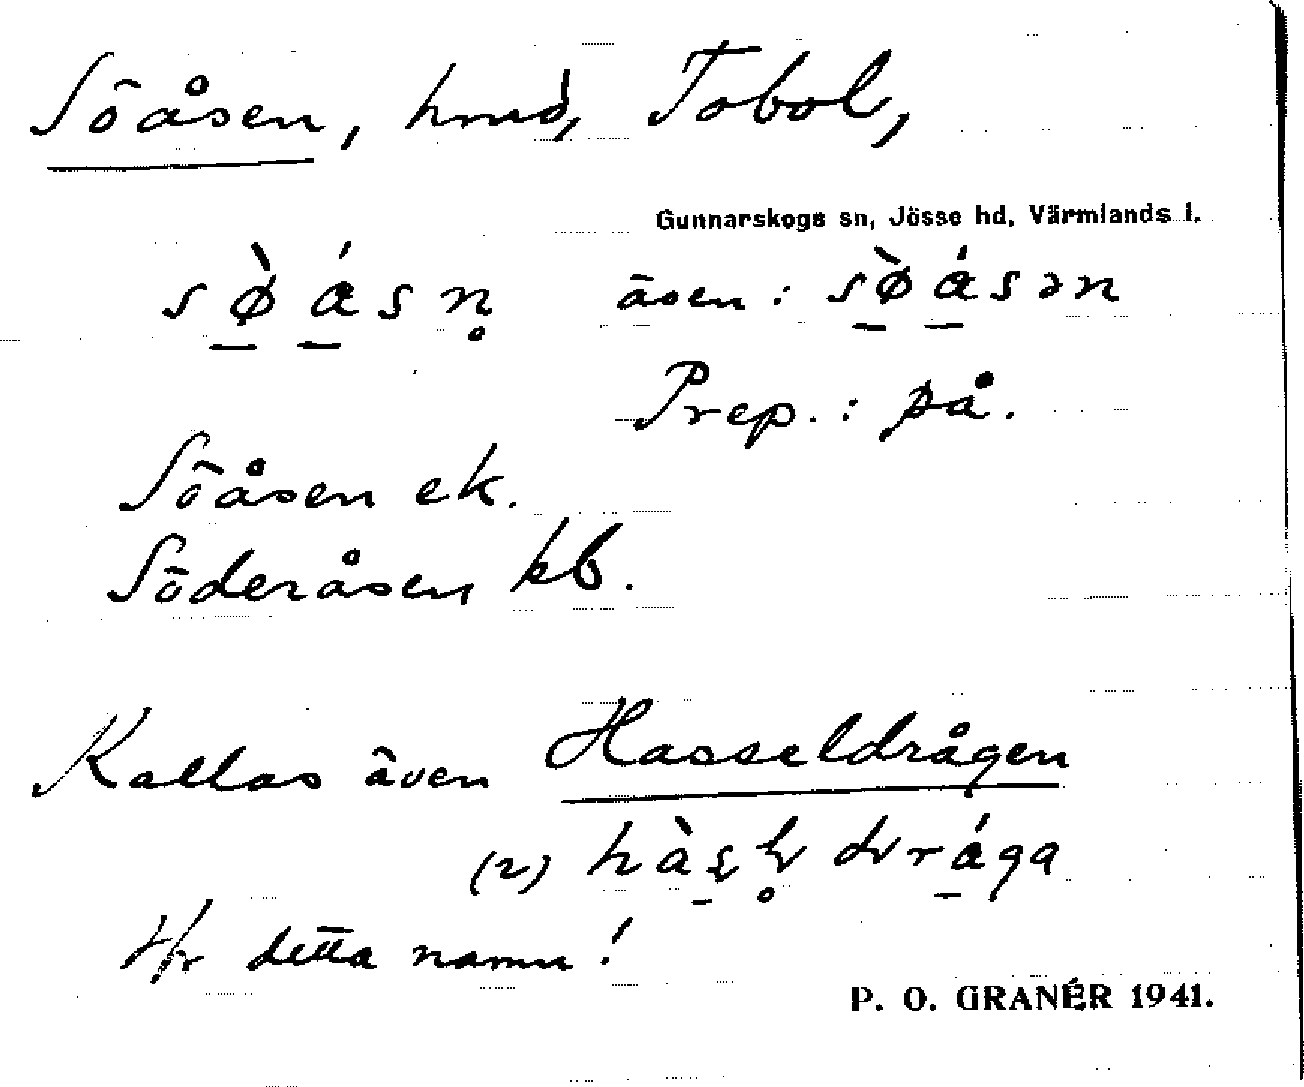 Söåsen, hmd, Tobol,
Gunnarskogs sn, Jösse hd, Värmlands l.
även:
Prep.: på.
Söåsen ek.
Söderåsen kb.
Kallas även Hasseldrågen
(2)
Jfr detta namn!
P. O. GRANÉR 1941.